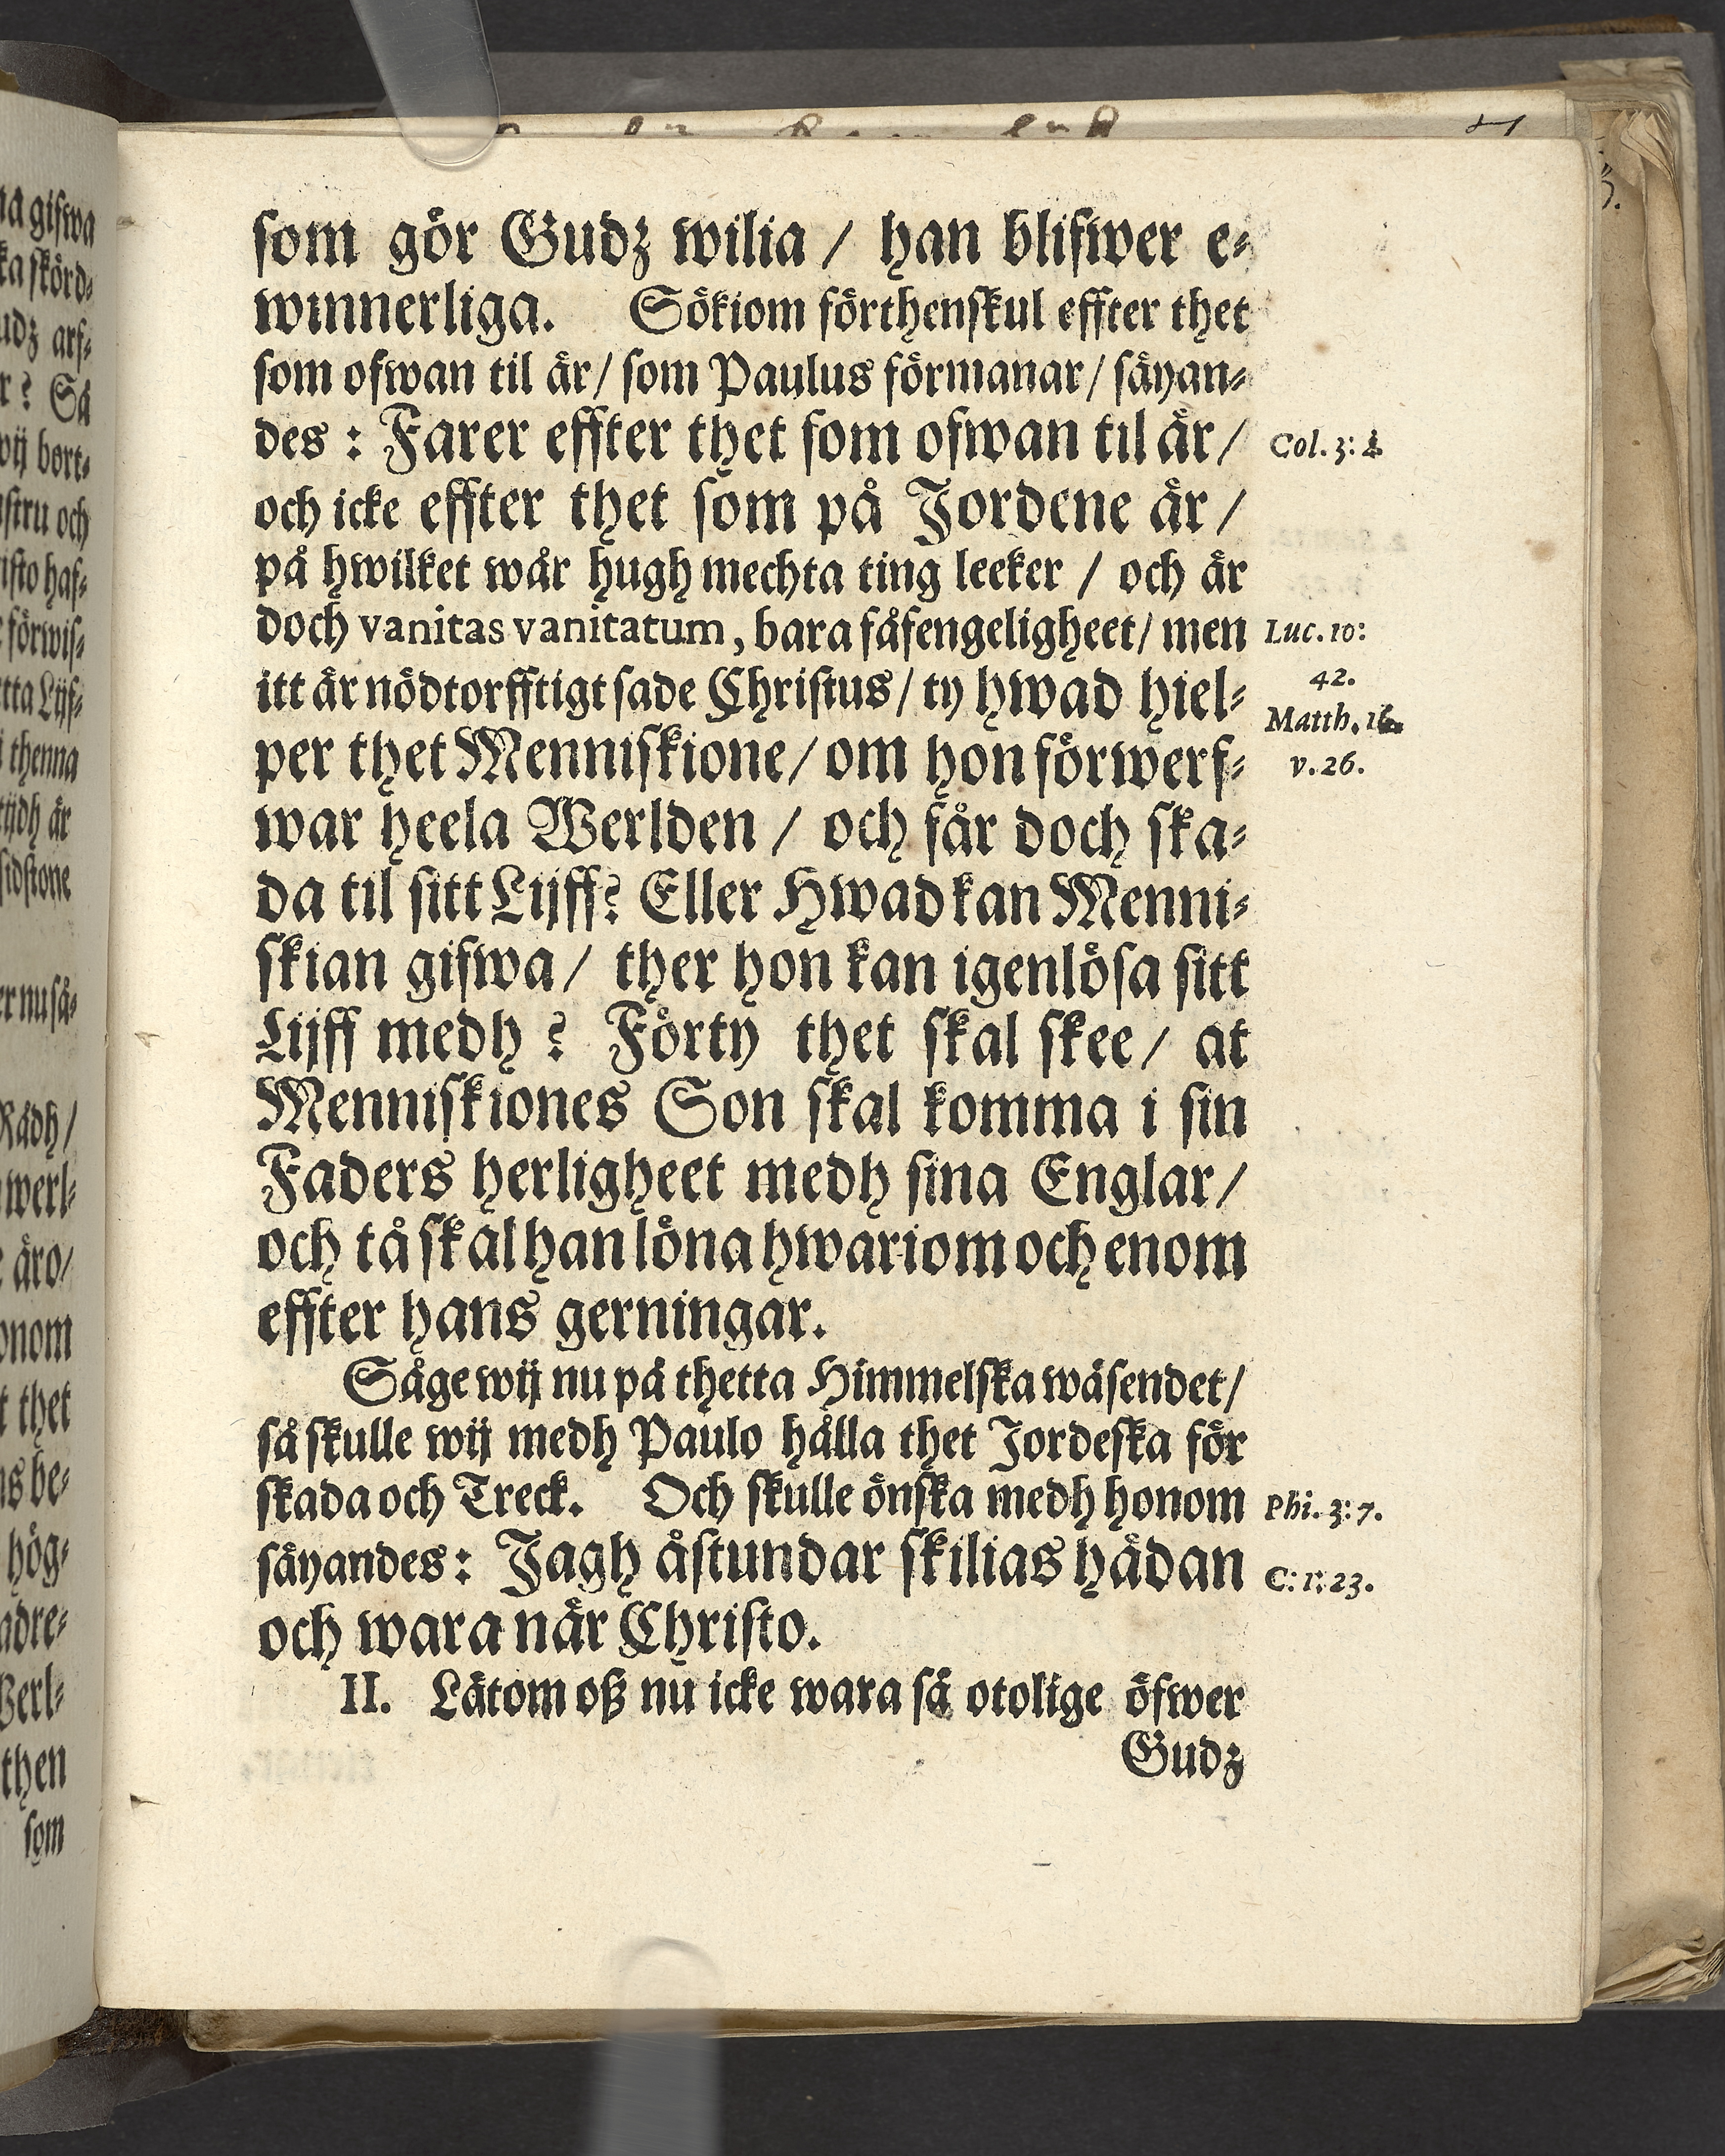 som gör Gudz wilia / han blifwer e-
winnerliga. Sökiom förthenskul effter thet
som ofwan til är / som Paulus förmanar / säyan-
des : Farer effter thet som ofwan til är /
Col. 3: 2.
och icke effter thet som på Jordene är /
på hwilket wår hugh mechta ting leeker / och är
doch vanitas vanitatum, bara fåfengeligheet / men
Luc. 10:
42.
itt är nödtorfftigt sade Christus / ty hwad hiel-
Matth. 16.
per thet Menniskione / om hon förwerf-
v. 26.
war heela Werlden / och får doch ska-
da til sitt Lijff? Eller Hwad kan Menni-
skian gifwa / ther hon kan igenlösa sitt
Lijff medh ? Förty thet skal skee / at
Menniskiones Son skal komma i sin
Faders herligheet medh sina Englar /
och tå skal han löna hwariom och enom
effter hans gerningar.
Såge wij nu på thetta Himmelska wäsendet /
så skulle wij medh Paulo hålla thet Jordeska för
skada och Treck. Och skulle önska medh honom
Phi. 3: 7.
säyandes : Jagh åstundar skilias hädan
C: 1: 23.
och wara när Christo.
II. Låtom oß nu icke wara så otolige öfwer
Gudz